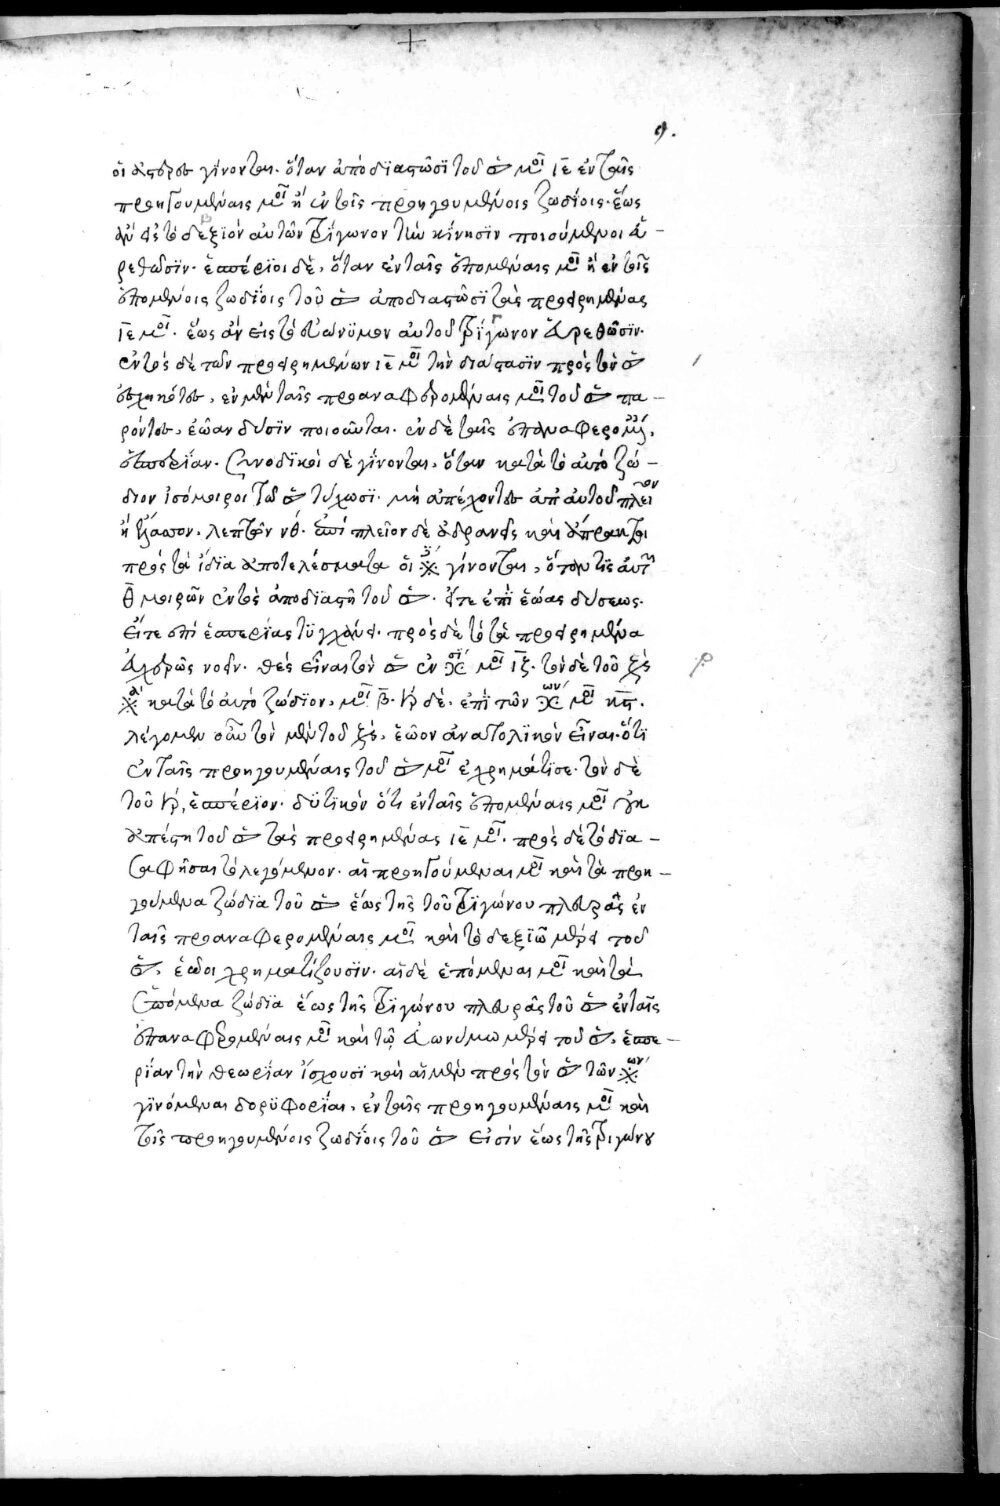 9.
οἱ ἀστέρες γίνονται. ὅταν ἀποδιαστῶσϊ τοῦ ☉ μοῖ ῑε̄ ἐν ταῖς
προηγουμέναις μοῖ ἢ ἐν τοῖς προηγουμένοις ζωδίοις. ἕως
ἂν εἰς τὸ δεξϊὸν αὐτῶν τρίγωνον τὴν κίνησϊν ποιούμενοι
ρεθῶσϊν. ἑσπέρϊοι δὲ, ὅταν ἐν ταῖς ἑπομέναις μοῖ ἢ ἐν τοῖς
ἑπομένοις ζωδίοις τοῦ ☉ ἀποδιαστῶσϊ τὰς προειρημένας
ῑε̄ μοῖ. ἕως ἂν εἰς τὸ εὐώνϋμον αὐτοῦ τρίγωνον εὑρεθῶσϊν.
ἐντὸς δὲ τῶν προειρημένων ῑε̄ μοῖ τὴν διάστασϊν πρὸς τὸν ☉
ἐσχηκότες, ἐν μὲν ταῖς προαναφερομέναις μοῖ τοῦ ☉ πα-
ρόντες, ἑῴαν δύσϊν ποιοῦνται. ἐν δὲ ταῖς ἐπαναφερομ,
ἑσπερίαν. Συνοδϊκοὶ δὲ γίνονται, ὅταν κατὰ τὸ αὐτὸ ζώ-
διον ἰσόμοιροι τῷ ☉ τύχωσϊ. μὴ ἀπέχοντες ἀπ' αὐτοῦ πλεῖον
ἢ ἔλαττον, λεπτῶν νθ. ἐπὶ πλεῖον δὲ ἀδρανεῖς καὶ ἄπρακτοι
πρὸς τὰ ἴδϊα ἀποτελέσματα οἱ ※ γίνονται, ὅταν τϊς αὐτῶν
θ̄ μοιρῶν ἐντὸς ἀποδϊαστῇ τοῦ ☉. εἴτε ἐπὶ ἑῴας δύσεως.
εἴτε ἐπὶ ἑσπερίας τϋγχάνει. πρὸς δὲ τὸ τὰ προειρημένα
νοεῖν. θὲς εἶναι τὸν ☉ ἐν μοῖ ῑζ̄. τὸν δὲ τοῦ
※ κατὰ τὸ αὐτὸ ζώδϊον, μοῖ β̄. δὲ. ἐπὶ τῶν μοῖ
λέγομεν οὖν τὸν μὲν τοῦ ἑῷον ἀνατολϊκὸν εἶναι. ὅτϊ
ἐν ταῖς προηγουμέναις τοῦ ☉ μοῖ ἐχρημάτϊσε. τὸν δὲ
τοῦ ἑσπέρϊον. δϋτϊκὸν ὅτι ἐν ταῖς ἑπομέναις μοῖ
ἀπέστη τοῦ ☉ τὰς προειρημένας ῑε̄ μοῖ. πρὸς δὲ τὸ δϊα-
σαφῆσαι τὸ λεγόμενον. αἱ προηγούμεναι μοῖ καὶ τὰ προη-
γούμενα ζώδϊα τοῦ ☉ ἕως τῆς τοῦ τρϊγώνου πλευρᾶς ἐν
ταῖς προαναφερομέναις μοῖ καὶ τὸ δεξϊῶ μέρει τοῦ
☉, ἑῷοι χρηματίζουσϊν. αἱ δὲ ἑπόμεναι μοῖ καὶ τὰ
ἑπόμενα ζώδϊα ἕως τῆς τρϊγώνου πλευρᾶς τοῦ ☉ ἐν ταῖς
ἐπαναφερομέναις μοῖ καὶ τῷ εὐωνύμω μέρει τοῦ ☉, ἑσπε-
ρίαν τὴν θεωρίαν ἴσχουσϊ καὶ αἱ μὲν πρὸς τὸν ☉ τῶν ※
γϊνόμεναι δορϋφορίαι, ἐν ταῖς προηγουμέναις μοῖ καὶ
τοῖς προηγουμένοις ζωδίοις τοῦ ☉ εἰσὶν ἕως τῆς τριγώνου